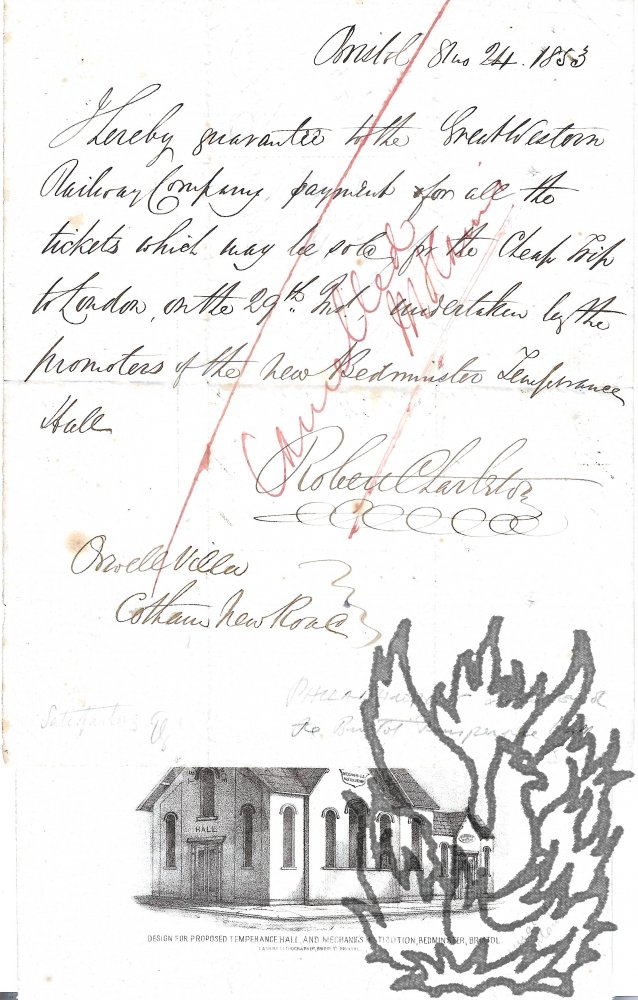 Bristol 8mo 24. 1853
I hereby guarantee to the Great Western
Railway Company, payment for all the
tickets which may be sold for the Cheap Trip
to London, on the 29th Inst., undertaken by the
promoters of the new Bedminster Temperance
Hall
Cancelled
Robert Charleton
Orwell Villa
Cotham New Road
the Bristol Temperance
HALL
DESIGN FOR PROPOSED TEMPERANCE HALL, AND MECHANICS INSTITUTION, BEDMINSTER, BRISTOL.